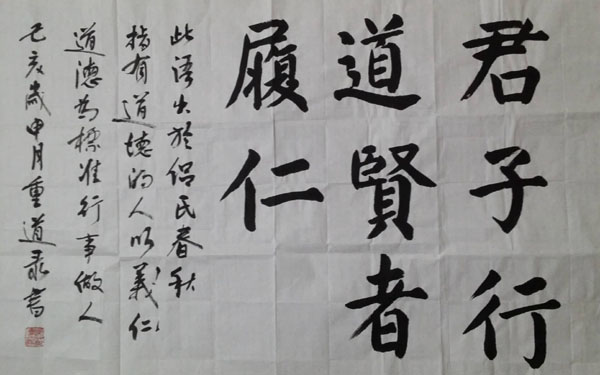 君子行
道賢者
履仁
此语出於侣氏春秋
指有道德的人以義仁
道德为標准行事做人
己亥歲申月重道录書